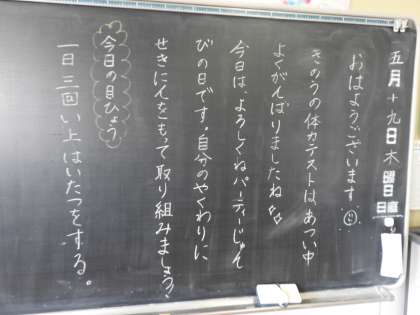 五月十九日木曜日
日直
おはようございます。
きのうの体力テストは、あつい中
よくがんばりましたね
今日は、よろしくねパーティーじゅん
びの日です。自分のやくわりに
せきにんをもって取り組みましょう!
今日の目ひょう
一日三回い上はいたつをする。